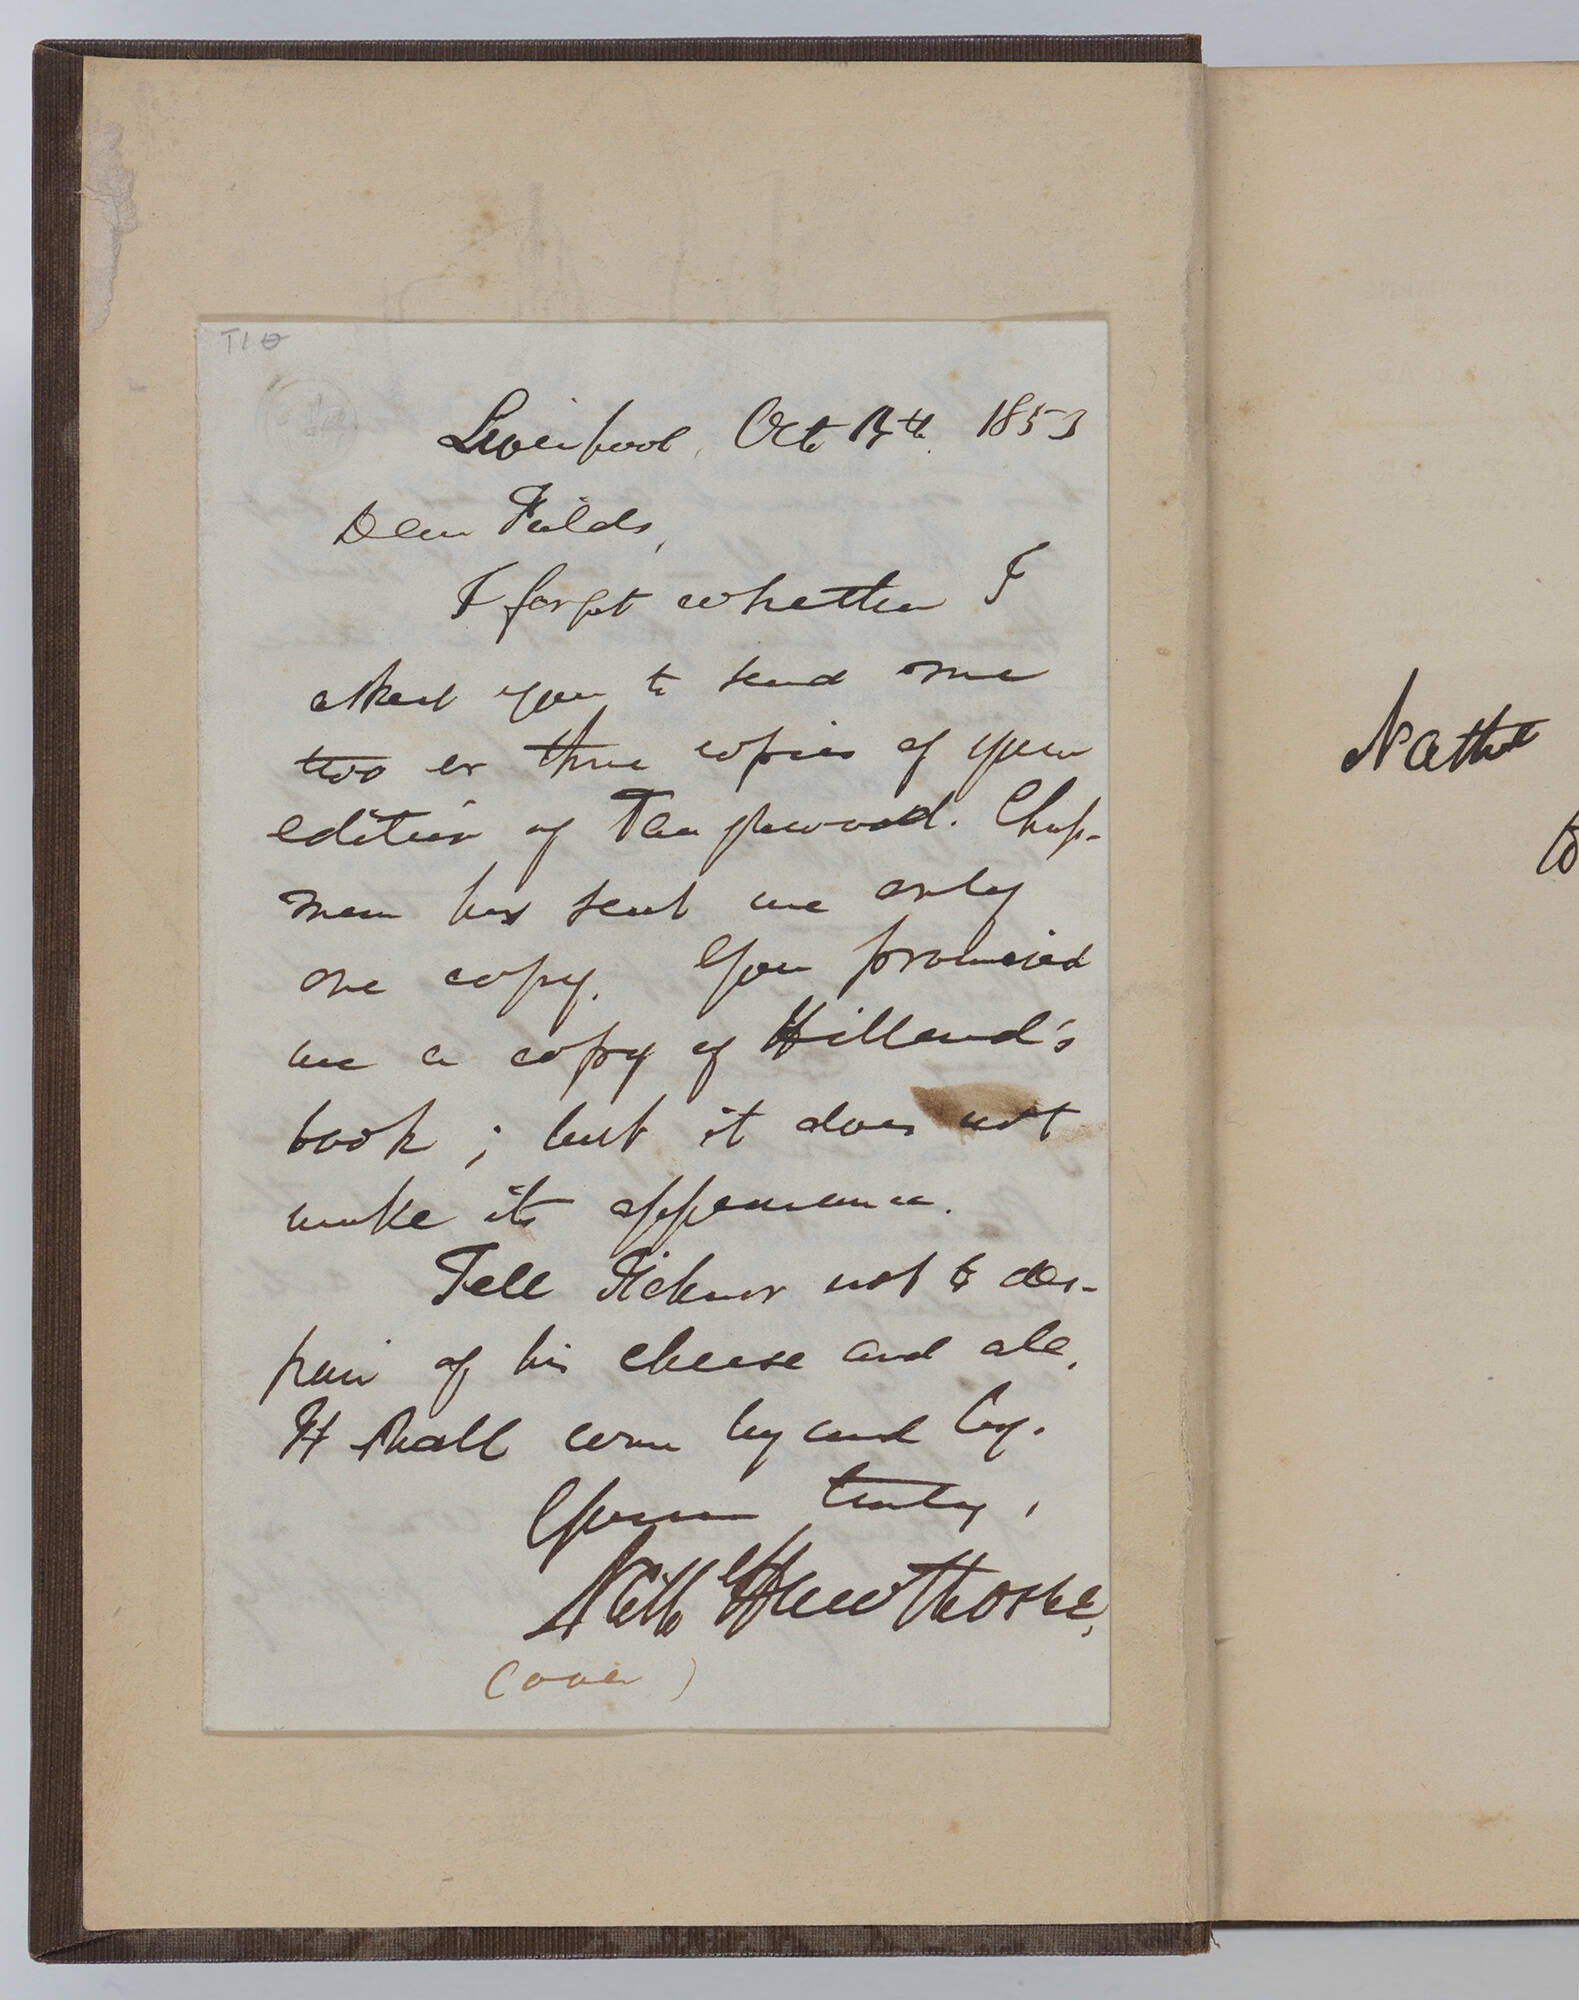 Liverpool, Oct 14th. 1853
Dear Fields,
I forget whether I
asked you to send me
two or three copies of your
edition of Tanglewood. Chap-
man has sent me only
one copy. You promised
me a copy of Hillard's
book; but it does not
make its appearance.
Tell Ticknor not to des-
pair of his cheese and ale.
It shall come by and by.
Yours truly,
Nath Hawthorne,
(over)